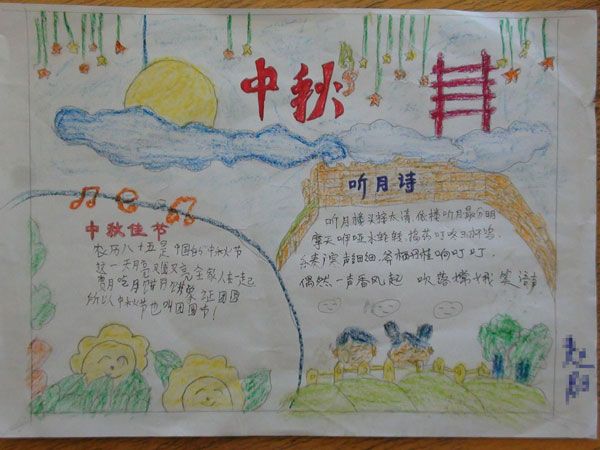 中秋
中秋佳节
农历八十五是中国的中秋节
这一天月亮又圆又亮 全家人在一起
赏月吃月饼月饼象征团圆
所以中秋节也叫团圆节!
听月诗
听月楼头接太清 依楼听月最分明
摩天咿哑冰轮转,捣药叮咚玉杵
乐奏广寒声细细,斧柯丹桂响叮叮,
偶然一声香风起 吹落嫦娥笑语声